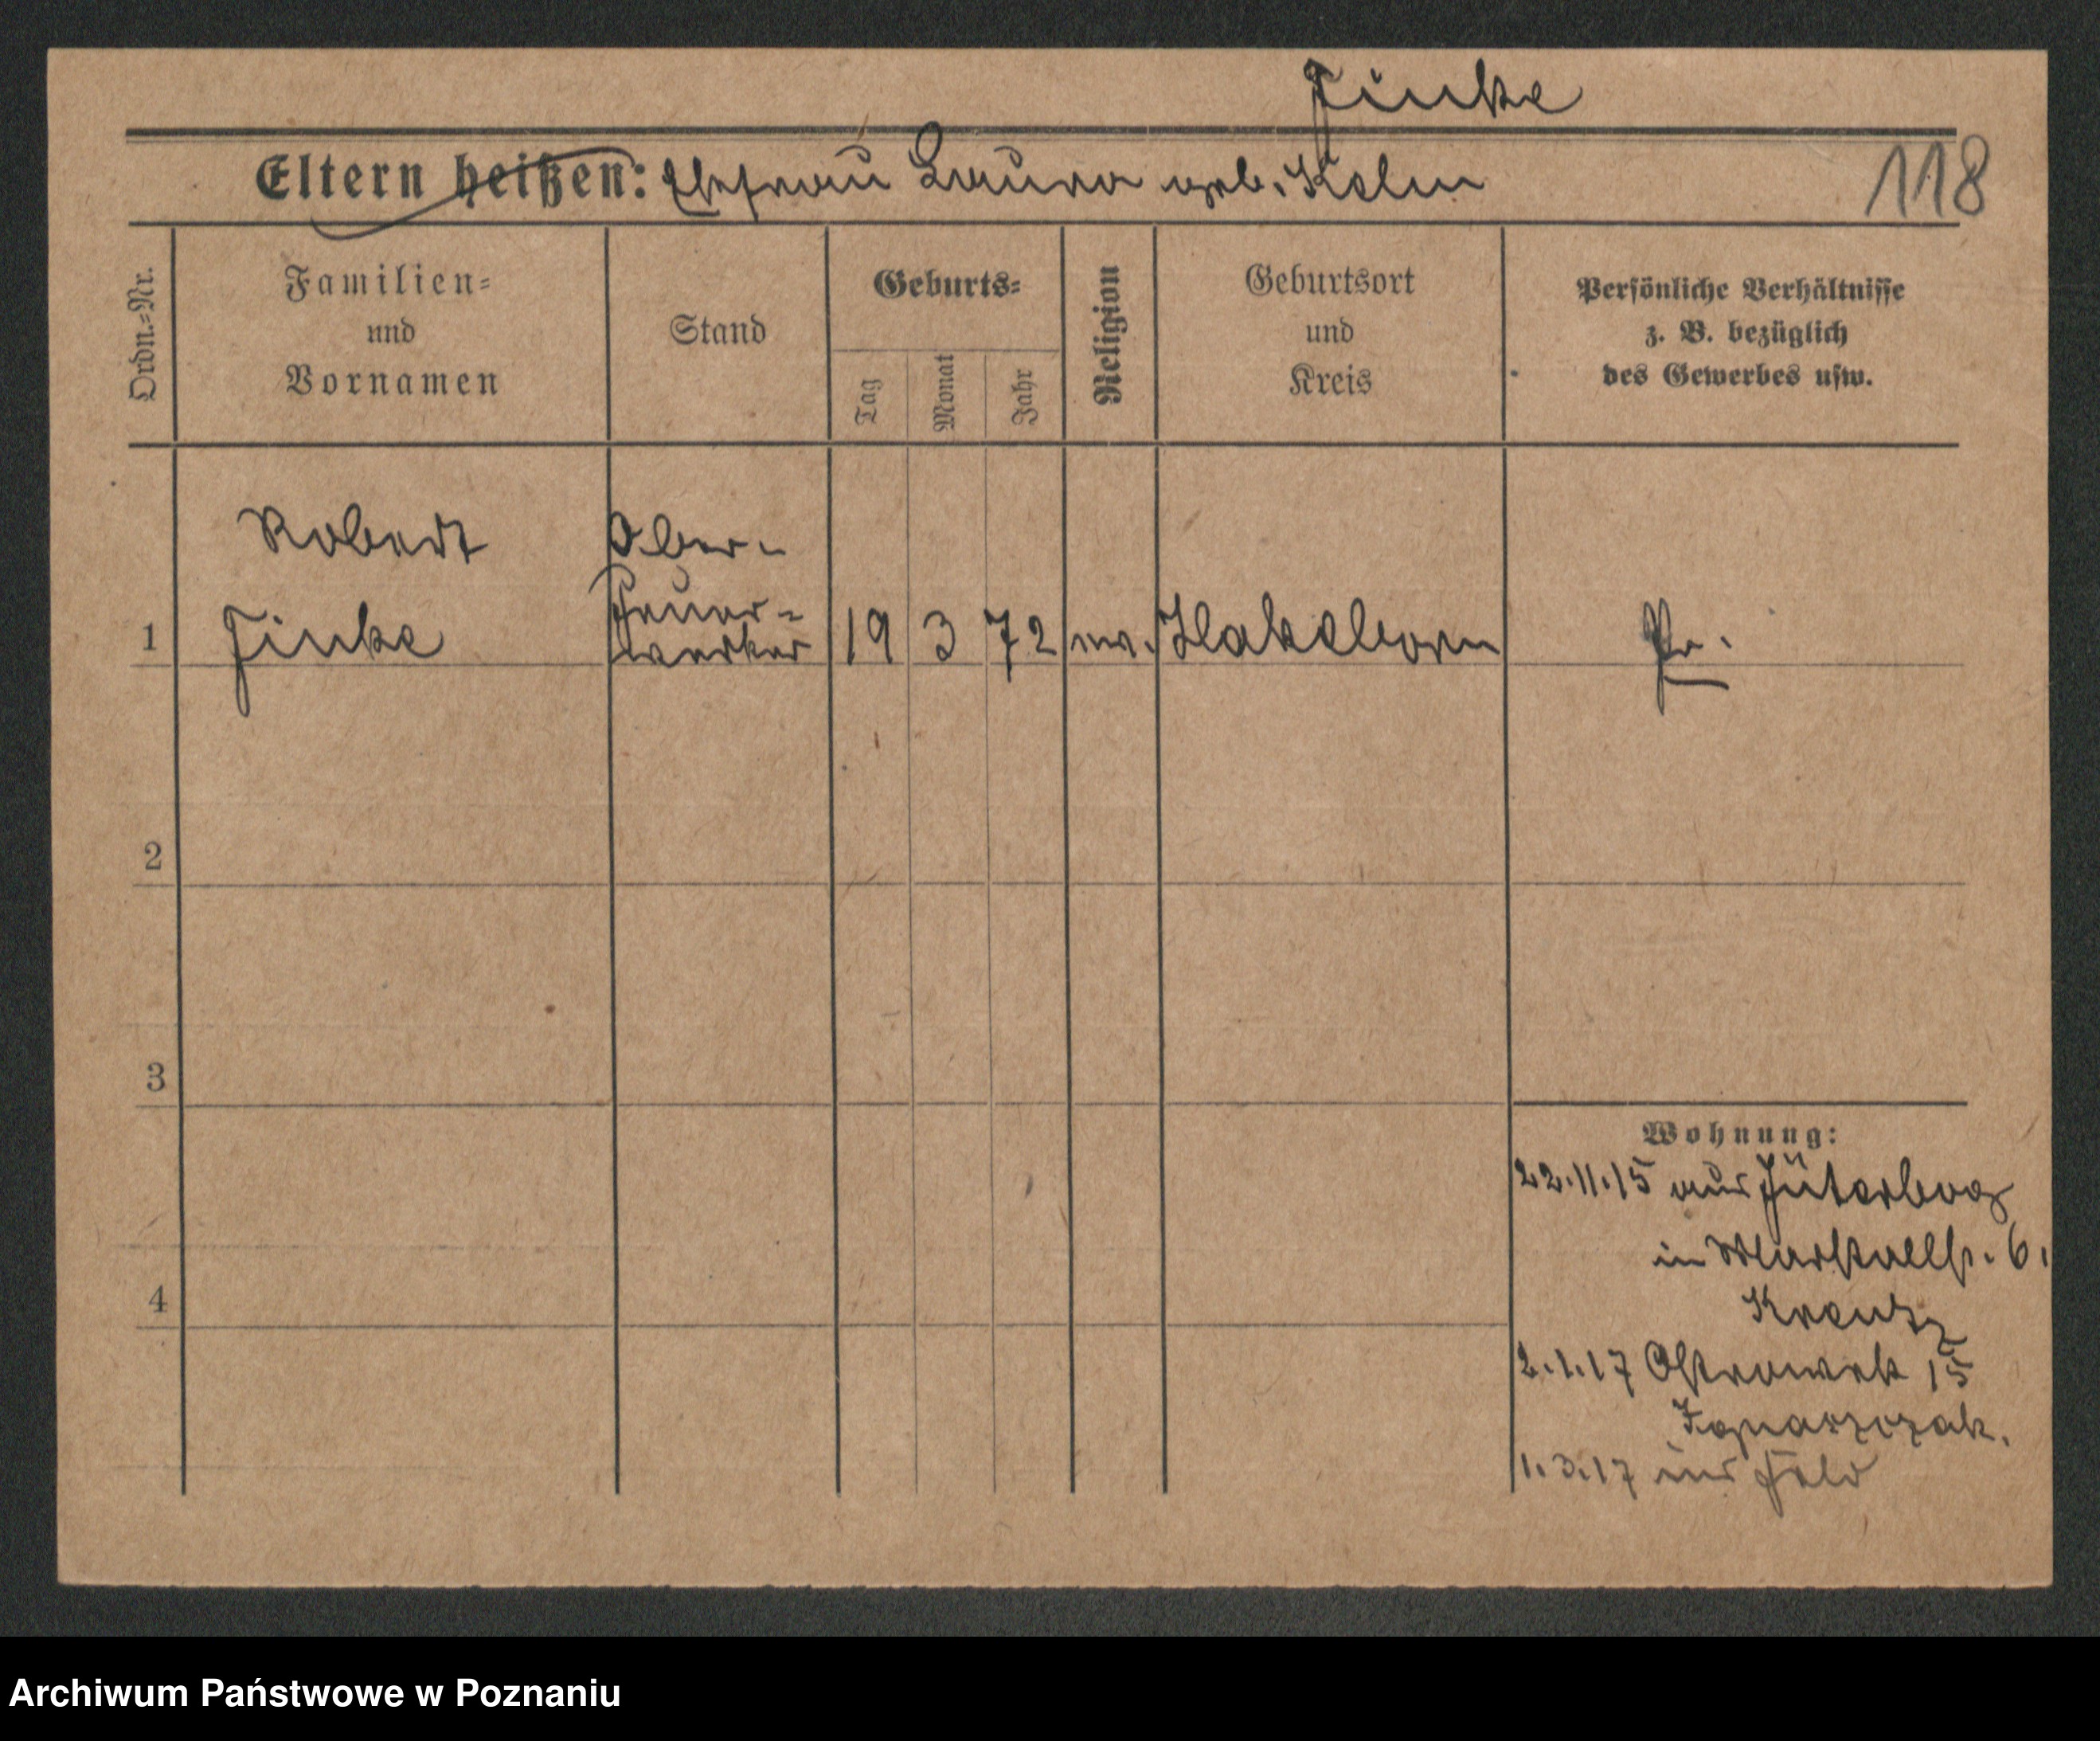 Finke
Eltern heißen: Ehefrau Laura geb. Kelm
118
Ordn.=Nr.
Familien=
und
Vornamen
Stand
Geburts=
Tag
Monat
Jahr
Religion
Geburtsort
und
Kreis
Persönliche Verhältnisse
z. B. bezüglich
des Gewerbes usw.
Robert Ober-
1 Finke Feuer=
werker 19 3 72 ev. Hakeborn Pr.
2
3
4
Wohnung:
22.11.15 aus Jüterbog
in Marstallstr. 6.
Kreutz
2.1.17 Ostrowek 15
Ignaszczak.
1.3.17 ins Feld
Archiwum Państwowe w Poznaniu